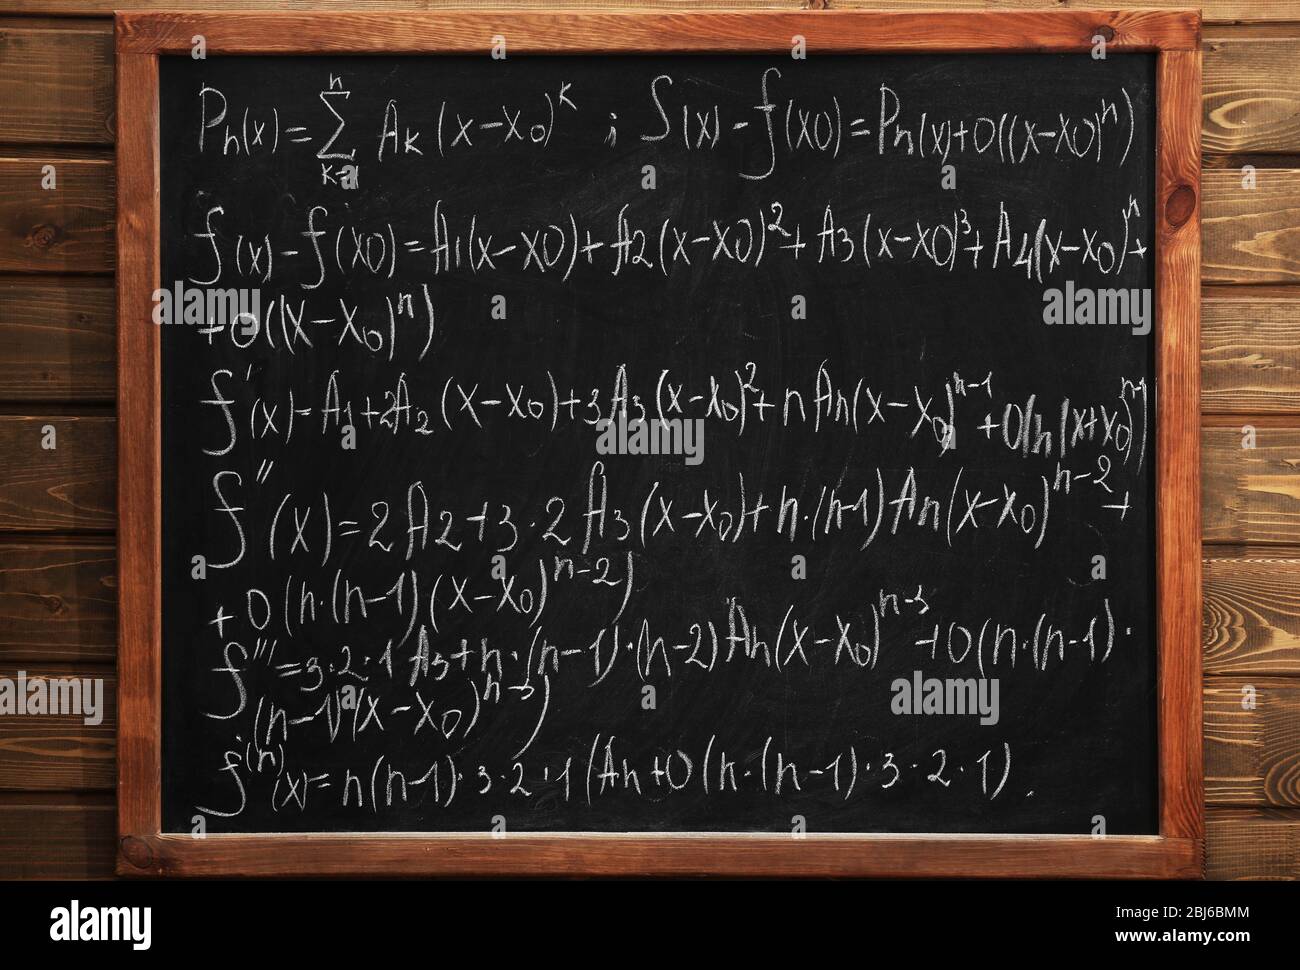 Pn(x)=∑ⁿₖ₌₁ Aₖ(x-x₀)ᵏ ; f(x)-f(x0)=Pn(x)+0((x-x0)ⁿ)
f(x)-f(x0)=A1(x-x0)+A2(x-x0)²+A3(x-x0)³+A4(x-x0)ⁿ+
+0((x-x₀)ⁿ)
f'(x)=A₁+2A₂(x-x₀)+3A₃(x-x₀)²+nAn(x-x₀)ⁿ⁻¹+0(n(x+x₀)ⁿ⁻¹)
f''(x)=2A2+3·2A3(x-x₀)+n·(n-1)An(x-x₀)ⁿ⁻²+
+0(n·(n-1)(x-x₀)ⁿ⁻²)
f'''=3·2·1A₃+n·(n-1)·(n-2)An(x-x₀)ⁿ⁻³+0(n·(n-1)·
(n-1)(x-x₀)ⁿ⁻³)
f⁽ⁿ⁾(x)=n(n-1)·3·2·1(An+0(n·(n-1)·3·2·1).
alamy
Image ID: 2BJ6BMM
www.alamy.com